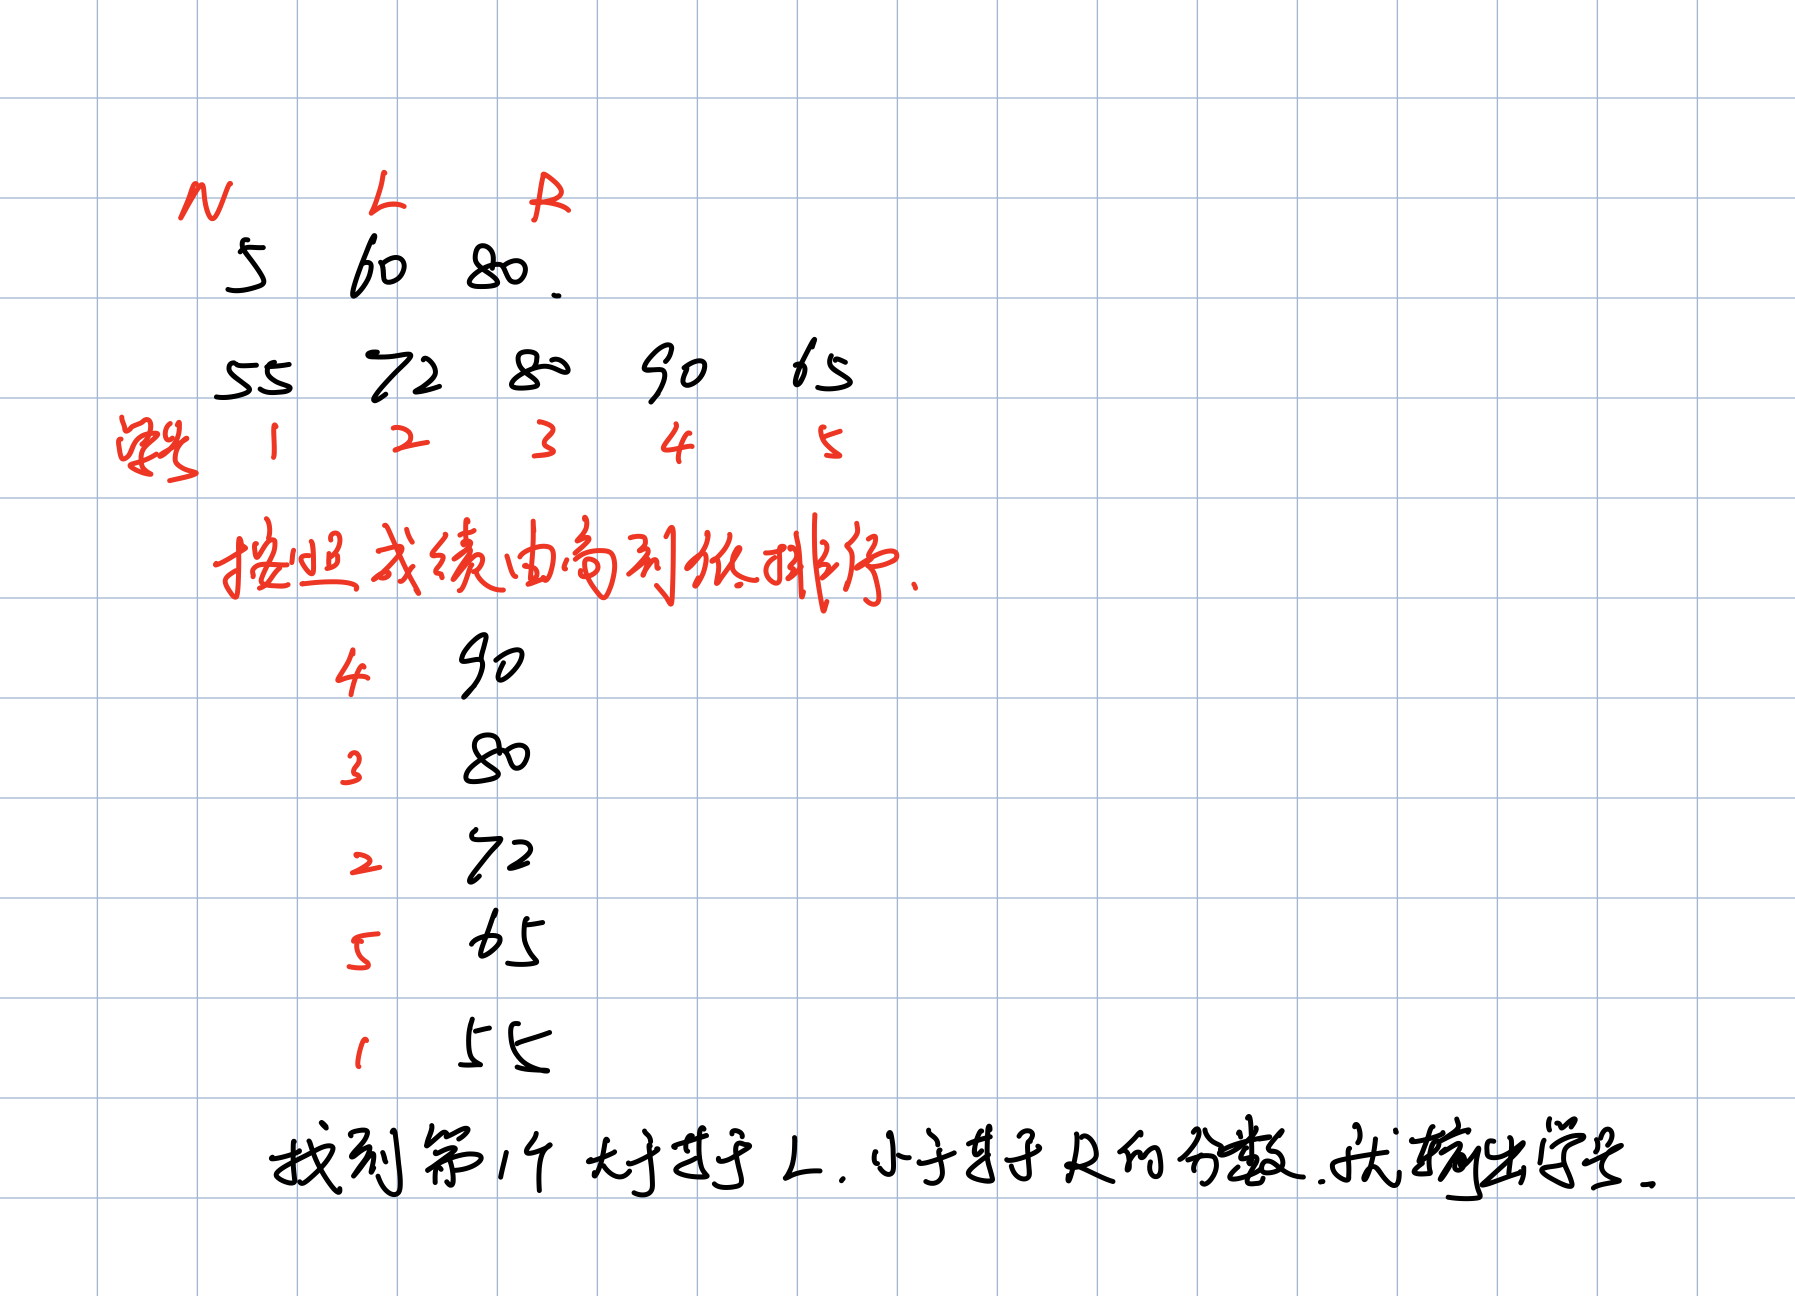 N L R
5 60 80.
55 72 80 90 65
学号 1 2 3 4 5
按照成绩由高到低排序.
4 90
3 80
2 72
5 65
1 55
找到第1个大于等于L.小于等于R的分数.就输出学号.